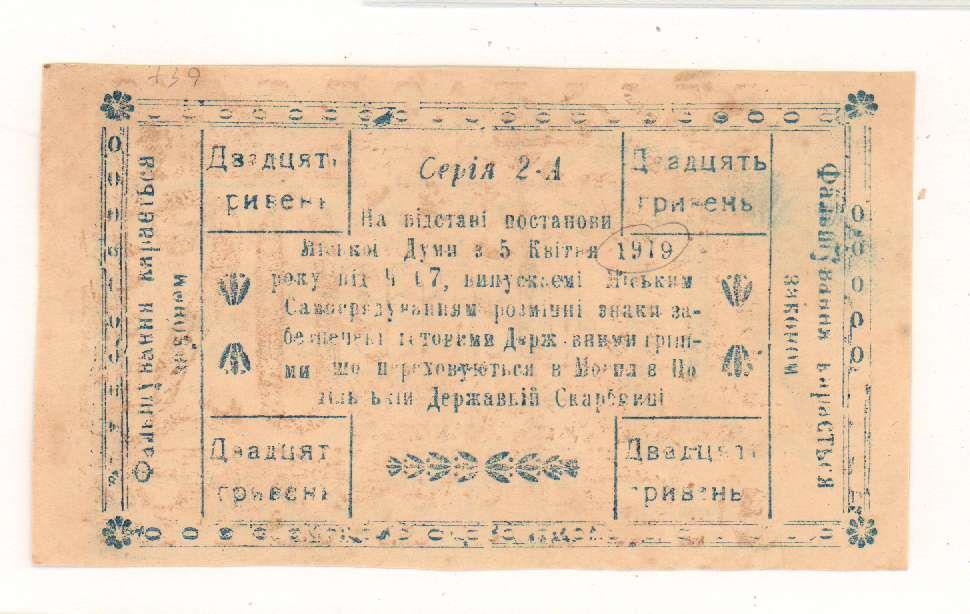 739
Двадцять
гривень
Серія 2-А
Двадцять
гривень
На підставі постанови
Міської Думи з 5 Квітня 1919
року під 67, випускаємі Міським
Самоврядуванням розмінні знаки за-
безпечені готовими Державними гріш-
ми що переховуються в По
Державній Скарбниці
Двадцять
гривень
Двадцять
гривень
Фальшування карається
законом
Фальшування карається
законом